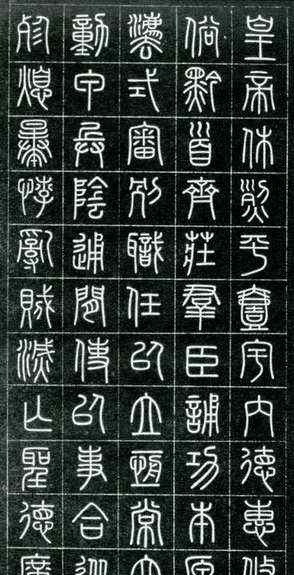 皇帝休烈平壹宇內德惠
俗黔首齊莊羣臣誦功本原
灋式審別職任以立恆常六
動甲兵陰通閒使以事合
殄熄暴悖亂賊滅亡聖德廣